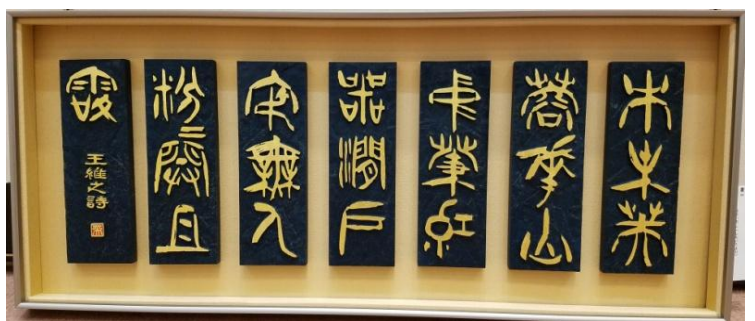 木末芙
蓉華山
中發紅
萼澗戶
寂無人
紛〻開且
落
王維之詩